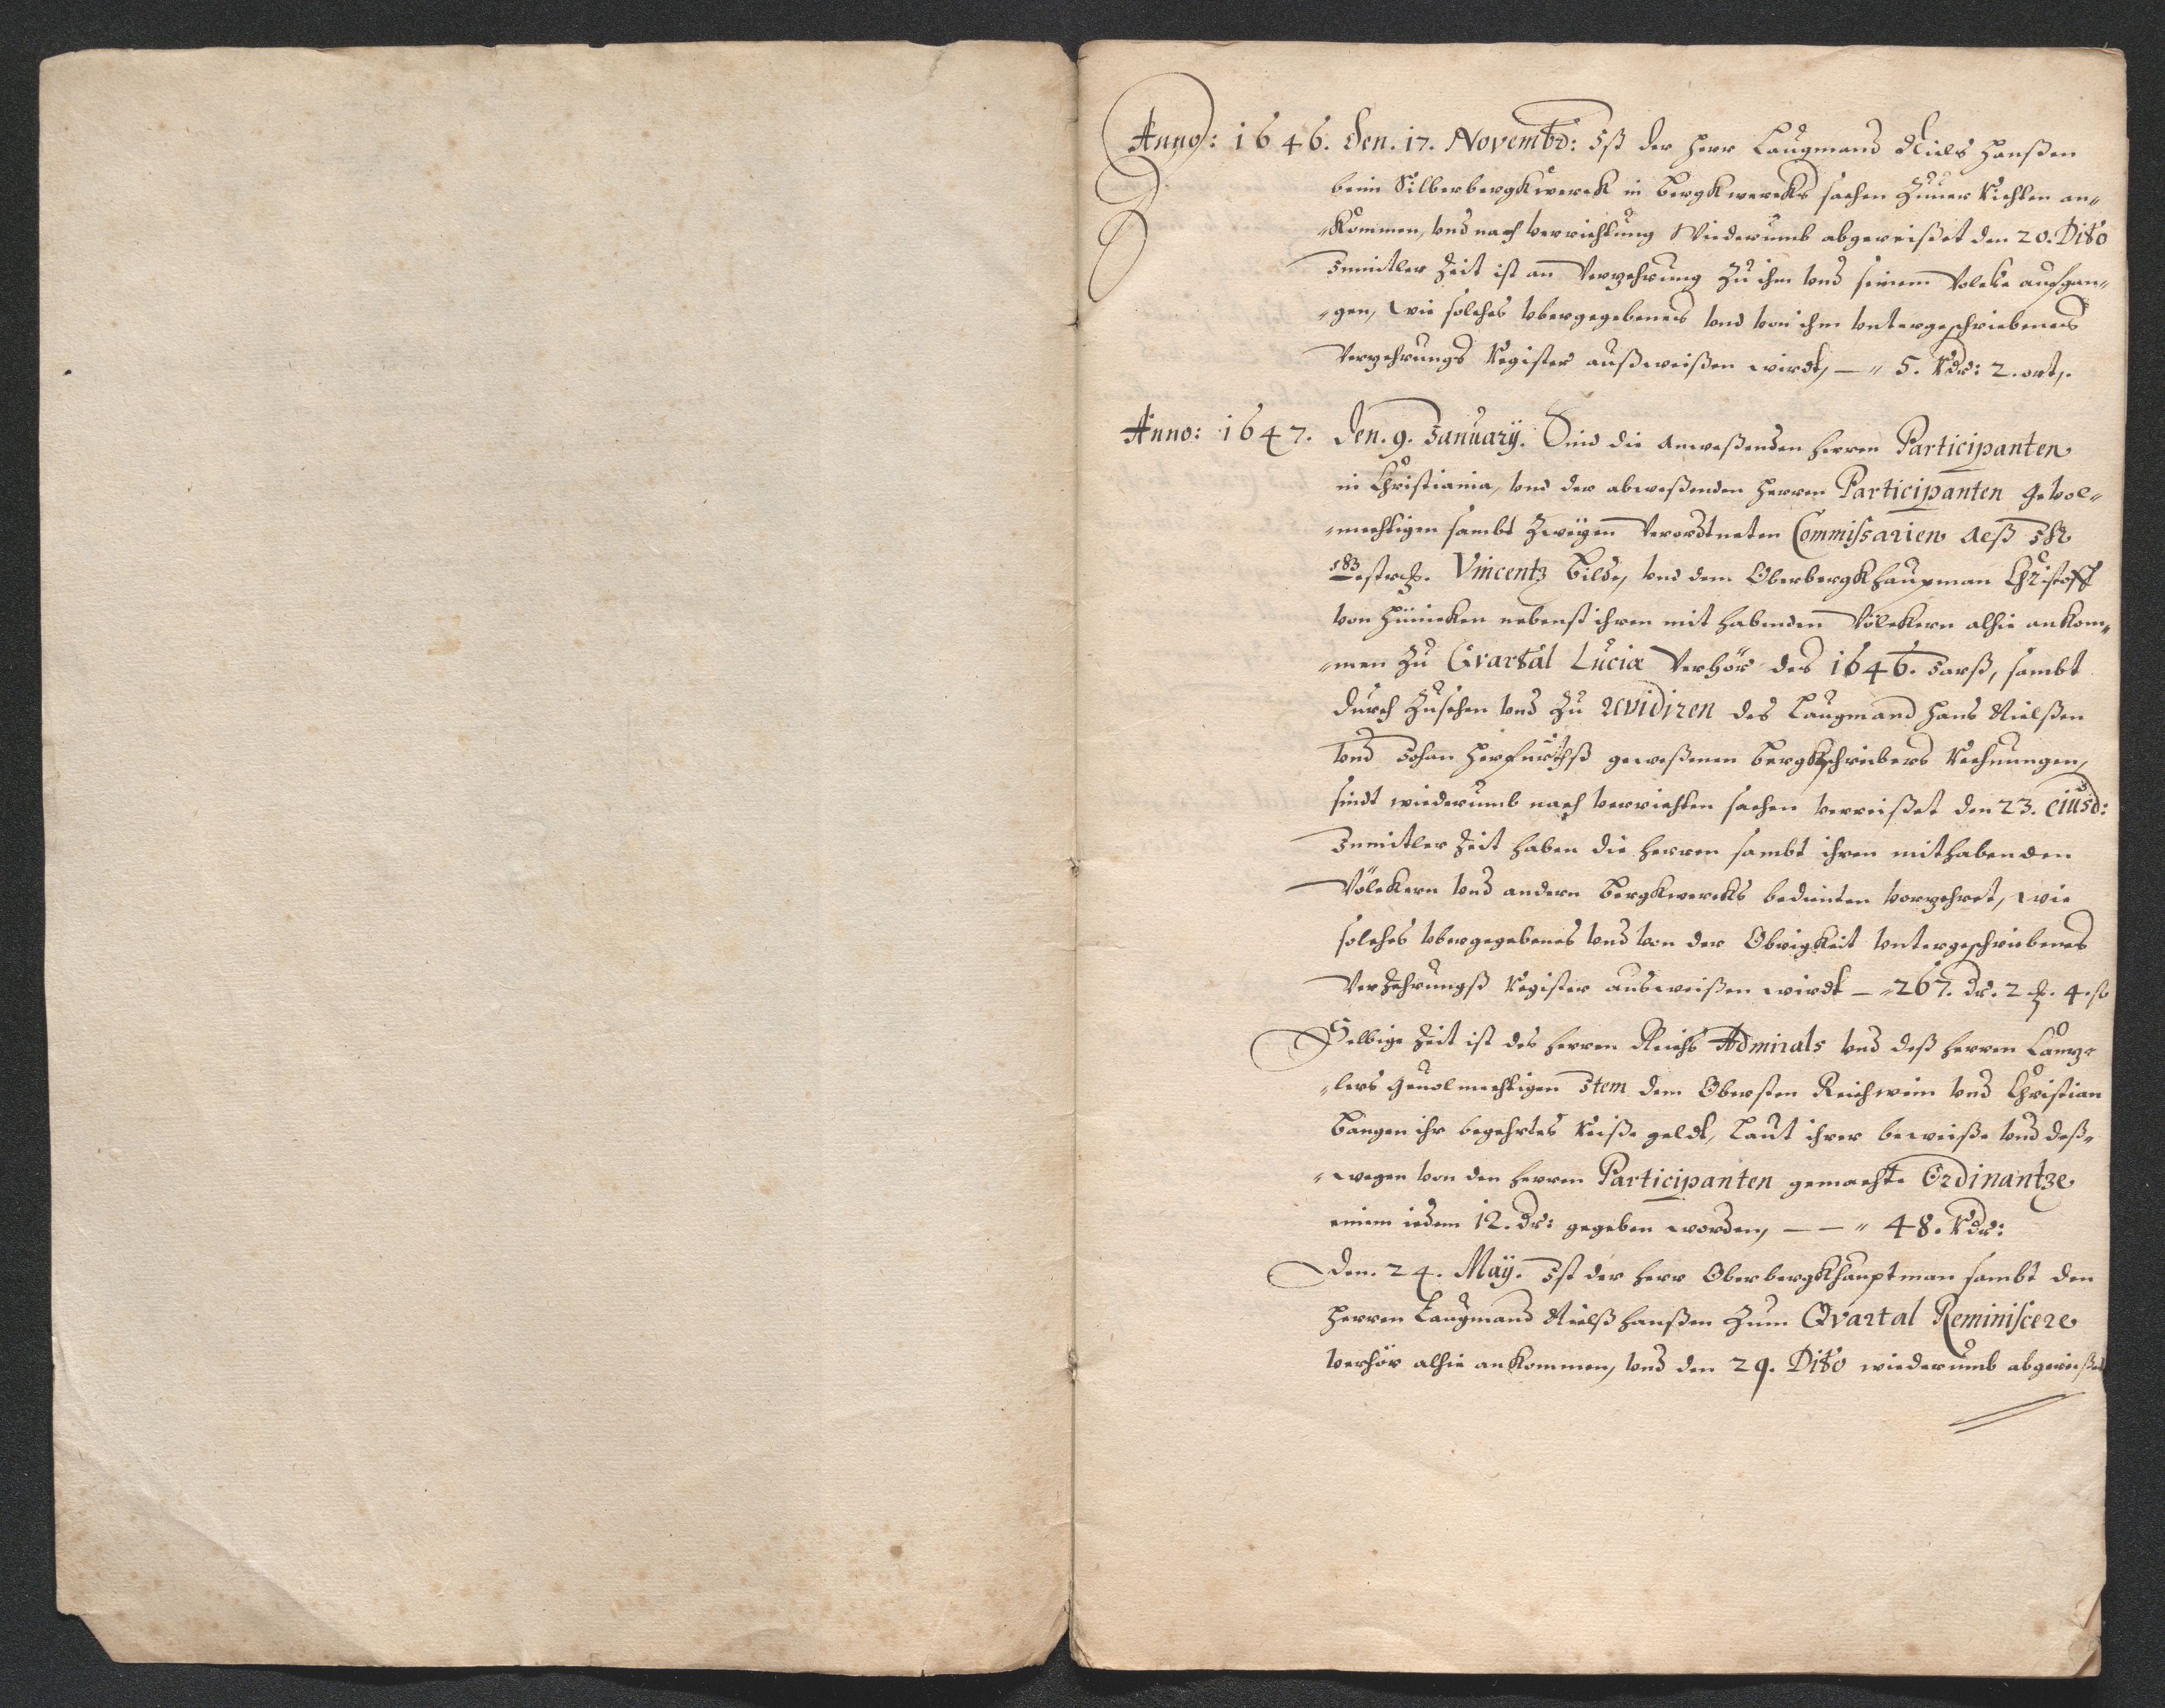 Anno: 1646. Den. 17. Novembr: Ist der Herr Laugmand Niels Hanßen
beim Silberbergkwerck in Bergkwercks sachen Zuuer Richten an„
„kommen, vnd nach verrichtung Wiederumb abgereißet den 20. Dito
Inmitler Zeit ist an Verzehrung Zu ihm vnd seinem Volcke aufgan„
„gen, wie solches vbergegebenes vnd von ihm vntergeschriebenes
Verzehrungs Register außweißen wirdt, — „ 5. Rdr: 2. ort.
Anno: 1647. Den. 9. January. Sind die Anweßenden Herren Participanten
in Christiania, vnd der abweßenden Herren Participanten Gevol„
„mechtigen sambt Zweyen Verordtneten Commissarien deß
Vincentz Bilde, vnd dem Oberbergkhaupman Christoff
von Hünicken nebenst ihren mit habenden Völckern alhie ankom„
„men Zu Qvartal Luciæ Verhör des 1646. Jarß, sambt
durch Zusehen vnd Zu revidiren des Laugmand Hans Nielßen
vnd Johan Herfurthß geweßenen Bergkschreibers Rechnungen,
sindt wiederumb nach verrichten sachen verreißet den 23. eiusd:
Inmitler Zeit haben die Herren sambt ihren mithabenden
Völckern vnd andern Bergkwercks bedienten vorzehret, wie
solches vbergegebenes vnd von der Obrigkeit vntergeschriebenes
Verzehrungß Register außweißen wirdt — „ 267. dr. 2 4. ß
Selbige Zeit ist des Herren Reichs Admirals vnd deß Herren Cantz„
„lers Geuolmechtigen Item dem Obersten Reichwein vnd Christian
Bangen ihr begehrtes Reiße geldt, Laut ihrer beweiße vnd deß„
„wegen von den Herren Participanten gemachte Ordinantze
einem iedem 12. dr: gegeben worden, — — „ 48. Rdr:
Den. 24. Maÿ. Ist der Herr Oberbergkhauptman sambt den
Herren Laugmand Nielß Hanßen Zum Qvartal Reminiscere
verhör alhie ankommen, vnd den 29. Dito wiederumb abgereißet